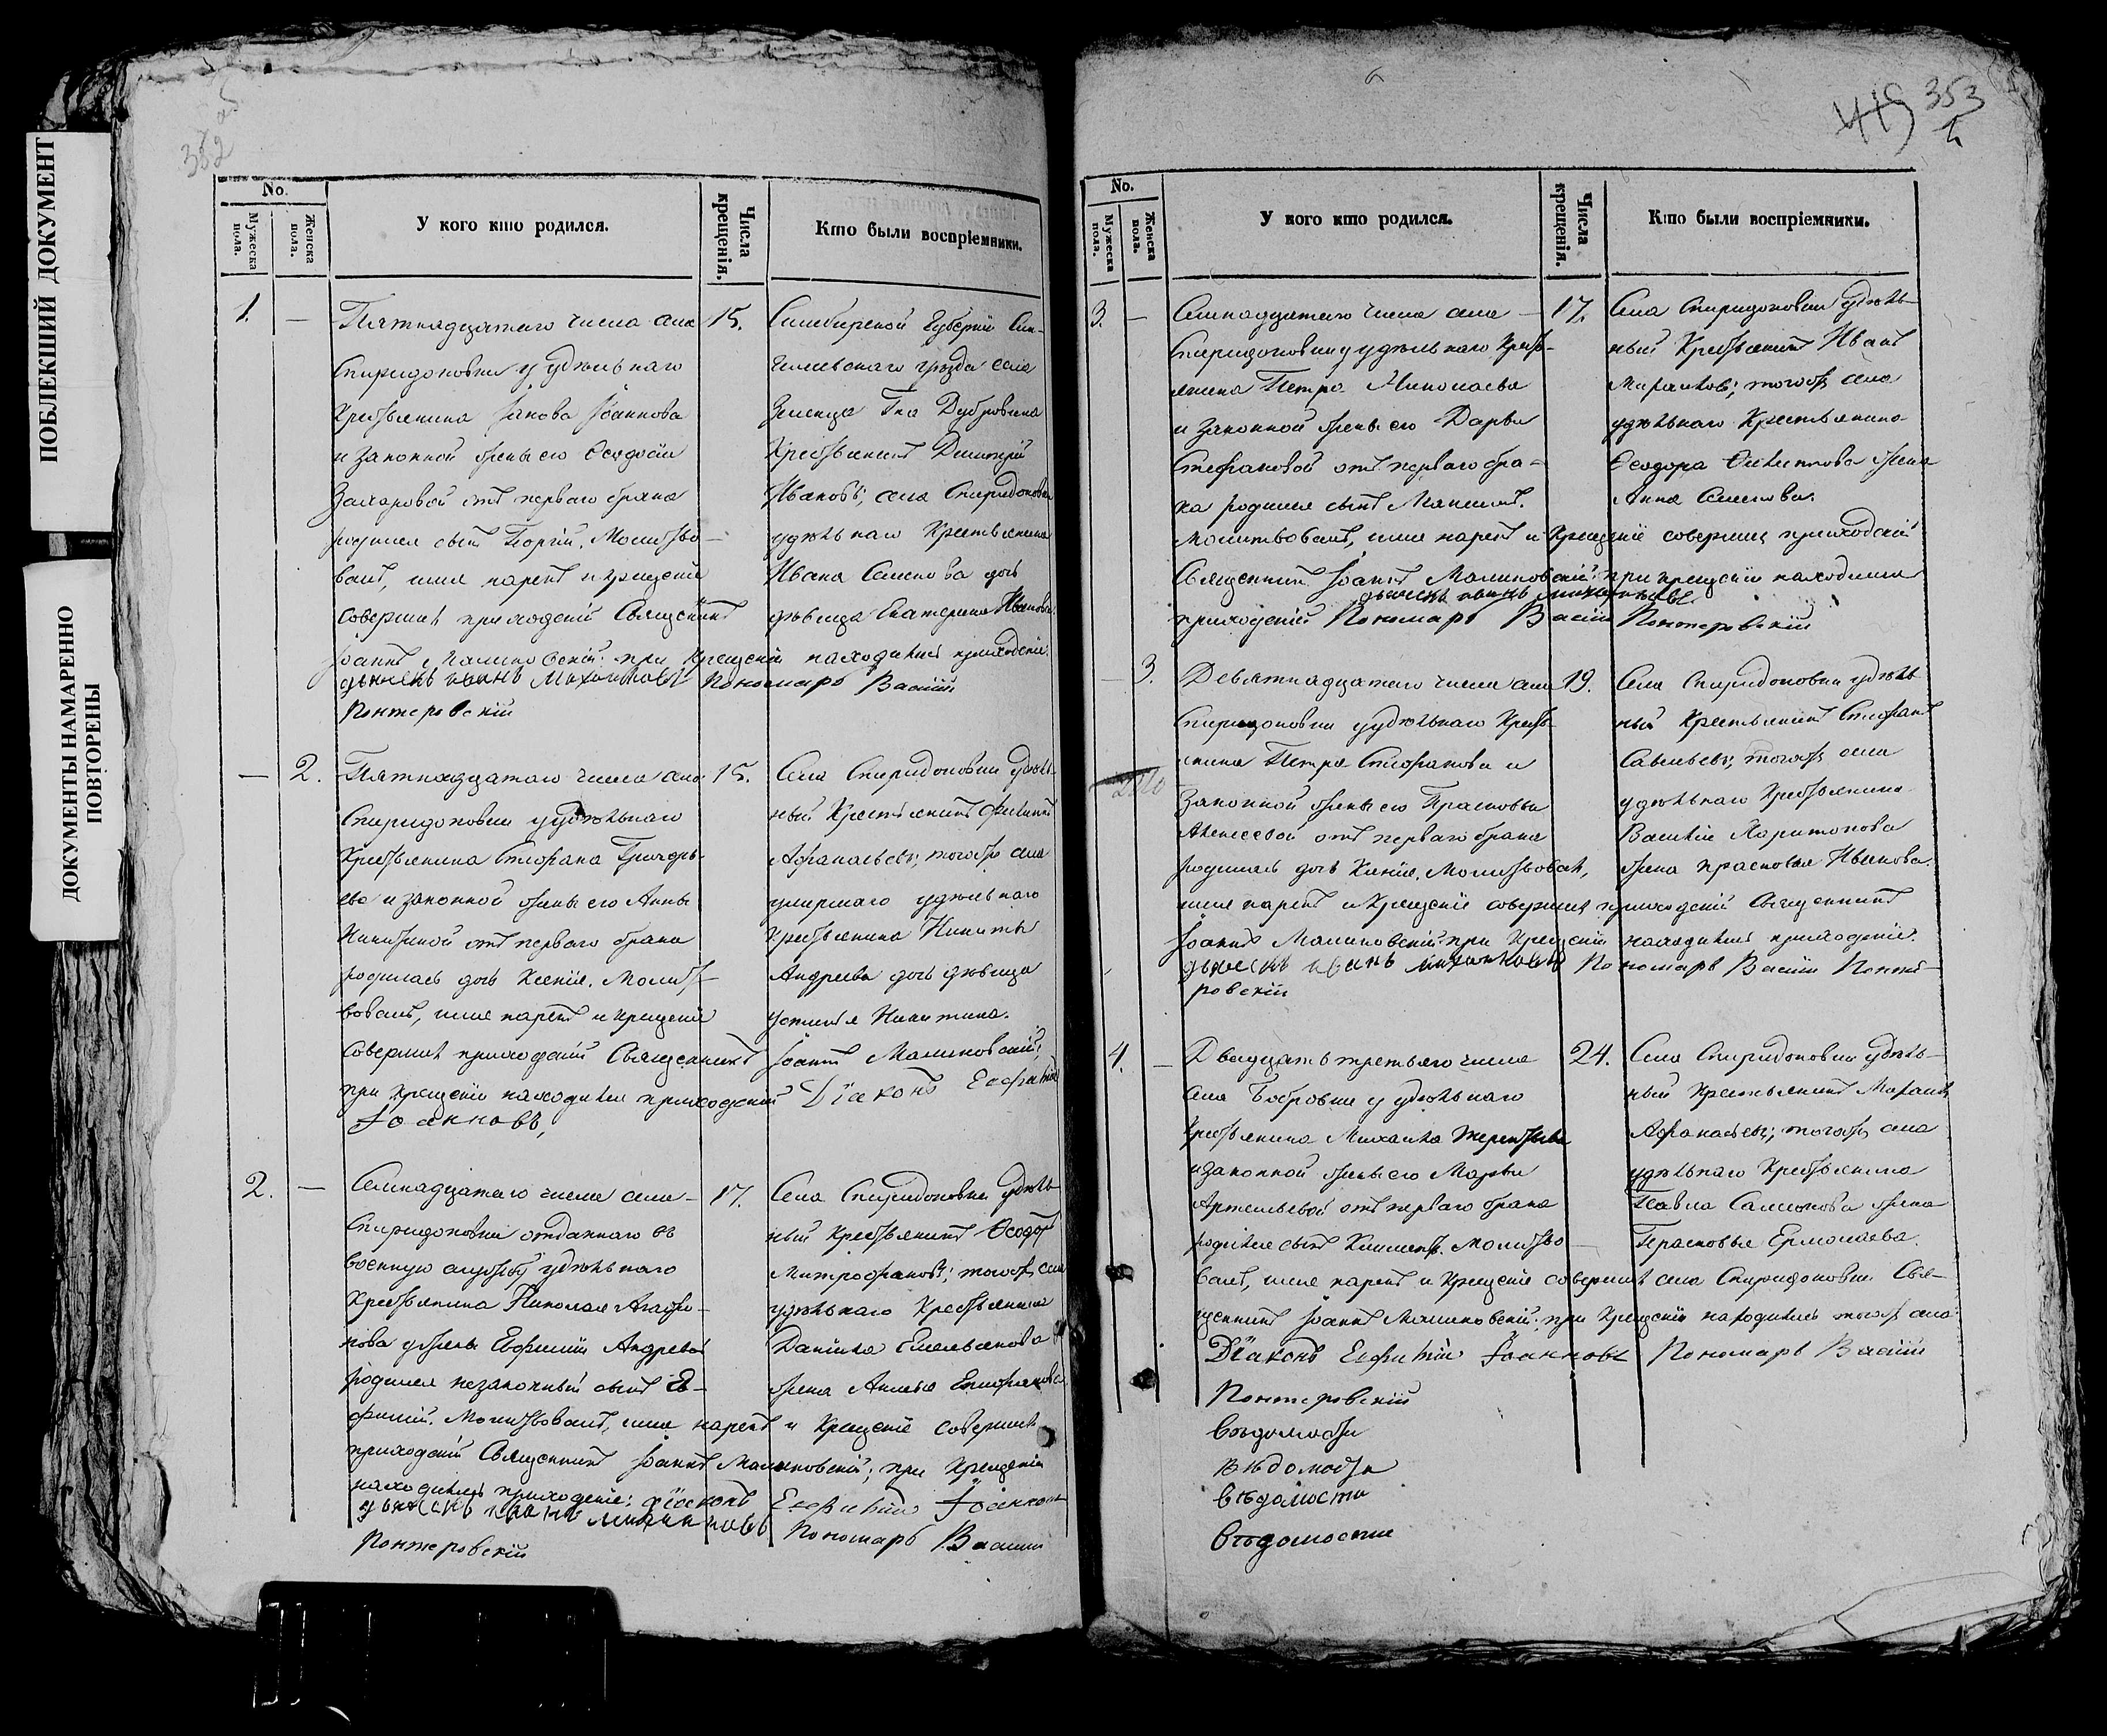 ПОБЛЕКШИЙ ДОКУМЕНТ
ДОКУМЕНТЫ НАМАРЕННО
ПОВТОРЕНЫ
352
No.
Мужеска пола.
Женска пола.
У кого кто родился.
Числа крещенія.
Кто были воспріемники.
1. —
Пятнадцатаго числа села
Спиридоновки у удѣльнаго
Крестьянина Іакова Іоаннова
и законной жены его Ѳеодосіи
Захаровой отъ перваго брака
родился сынъ Георгій. Молитво-
валъ, имя нарекъ и крещеніе
совершилъ приходскій Священникъ
Іоаннъ Малиновскій: при крещеніи находились приходскіе:
дьячекъ иванъ Пономарь Василій
Понтеровскій
15.
Симбирской Губерніи Сен-
гилеевскаго уѣзда села
Дубровина
Крестьянинъ Димитрій
Ивановъ; села Спиридоновки
удѣльнаго Крестьянина
Ивана Семенова дочь
дѣвица Екатерина Иванова.
— 2.
Пятнадцатаго числа села
Спиридоновки у удѣльнаго
Крестьянина Стефана Григорь-
ева и законной жены его Анны
Никитиной отъ перваго брака
родилась дочь Ксенія. Молит-
вовалъ, имя нарекъ и крещеніе
совершилъ приходскій Священникъ Іоаннъ Малиновскій;
при крещеніи находился приходскій Діаконъ Евфимій
Іоанновъ,
15.
Села Спиридоновки удѣль-
ный Крестьянинъ Филиппъ
Афанасьевъ; тогожъ села
умершаго удѣльнаго
Крестьянина Никиты
Андреева дочь дѣвица
Устинья Никитина.
2. —
Семнадцатаго числа села
Спиридоновки отданнаго въ
военную службу удѣльнаго
Крестьянина Николая Агафо-
нова у жены Евфиміи Андреевой
родился незаконный сынъ Ев-
фимій. Молитвовалъ, имя нарекъ и Крещеніе совершилъ
приходскій Священникъ Іоаннъ Малиновскій; при Крещеніи
находились приходскіе: діаконъ Евфимій Іоанновъ
дьячекъ иванъ Пономарь Василій
Понтеровскій
17.
Села Спиридоновки удѣль-
ный Крестьянинъ Ѳеодоръ
Митрофановъ; тогожъ села
удѣльнаго Крестьянина
Даніила Емельянова
жена Епифанова
353
No.
Мужеска пола.
Женска пола.
У кого кто родился.
Числа крещенія.
Кто были воспріемники.
3. —
Семнадцатаго числа села
Спиридоновки у удѣльнаго Кресть-
янина Петра Николаева
и законной жены его Дарьи
Стефановой отъ перваго бра-
ка родился сынъ
Молитвовалъ, имя нарекъ и Крещеніе совершилъ приходскій
Священникъ Іоаннъ Малиновскій: при крещеніи находились
дьячекъ иванъ
приходскій Пономарь Василій Понтеровскій
17.
Села Спиридоновки удѣль-
ный Крестьянинъ Иванъ
тогожъ села
удѣльнаго Крестьянина
Ѳеодора Филиппова жена
Анна Семенова.
— 3.
Девятнадцатаго числа села
Спиридоновки у удѣльнаго Кресть-
янина Петра Стефанова и
законной жены его Прасковьи
Алексеевой отъ перваго брака
родилась дочь Ксенія. Молитвовалъ,
имя нарекъ и Крещеніе совершилъ приходскій Священникъ
Іоаннъ Малиновскій: при Крещеніи находились приходскіе.
дьячекъ иванъ Пономарь Василій Понте-
ровскій
19.
Села Спиридоновки удѣль-
ный Крестьянинъ Стефанъ
Савельевъ; тогожъ села
удѣльнаго Крестьянина
Василія Харитонова
жена Прасковья Иванова.
4. —
Двадцать третьяго числа
села Бобровки у удѣльнаго
Крестьянина Михаила Терентьева
и законной жены его Марьи
Артемьевой отъ перваго брака
родился сынъ Климентъ. Молитво-
валъ, имя нарекъ и Крещеніе совершилъ села Спиридоновки Свя-
щенникъ Іоаннъ Малиновскій; при Крещеніи находились тогожъ села
Діаконъ Евфимій Іоанновъ Пономарь Василій
Понтеровскій
24.
Села Спиридоновки удѣль-
ный Крестьянинъ
Афанасьевъ; тогожъ села
удѣльнаго Крестьянина
Павла Самсонова жена
Прасковья Ермолаева.
Вѣдомости
вѣдомости
вѣдомости
вѣдомости